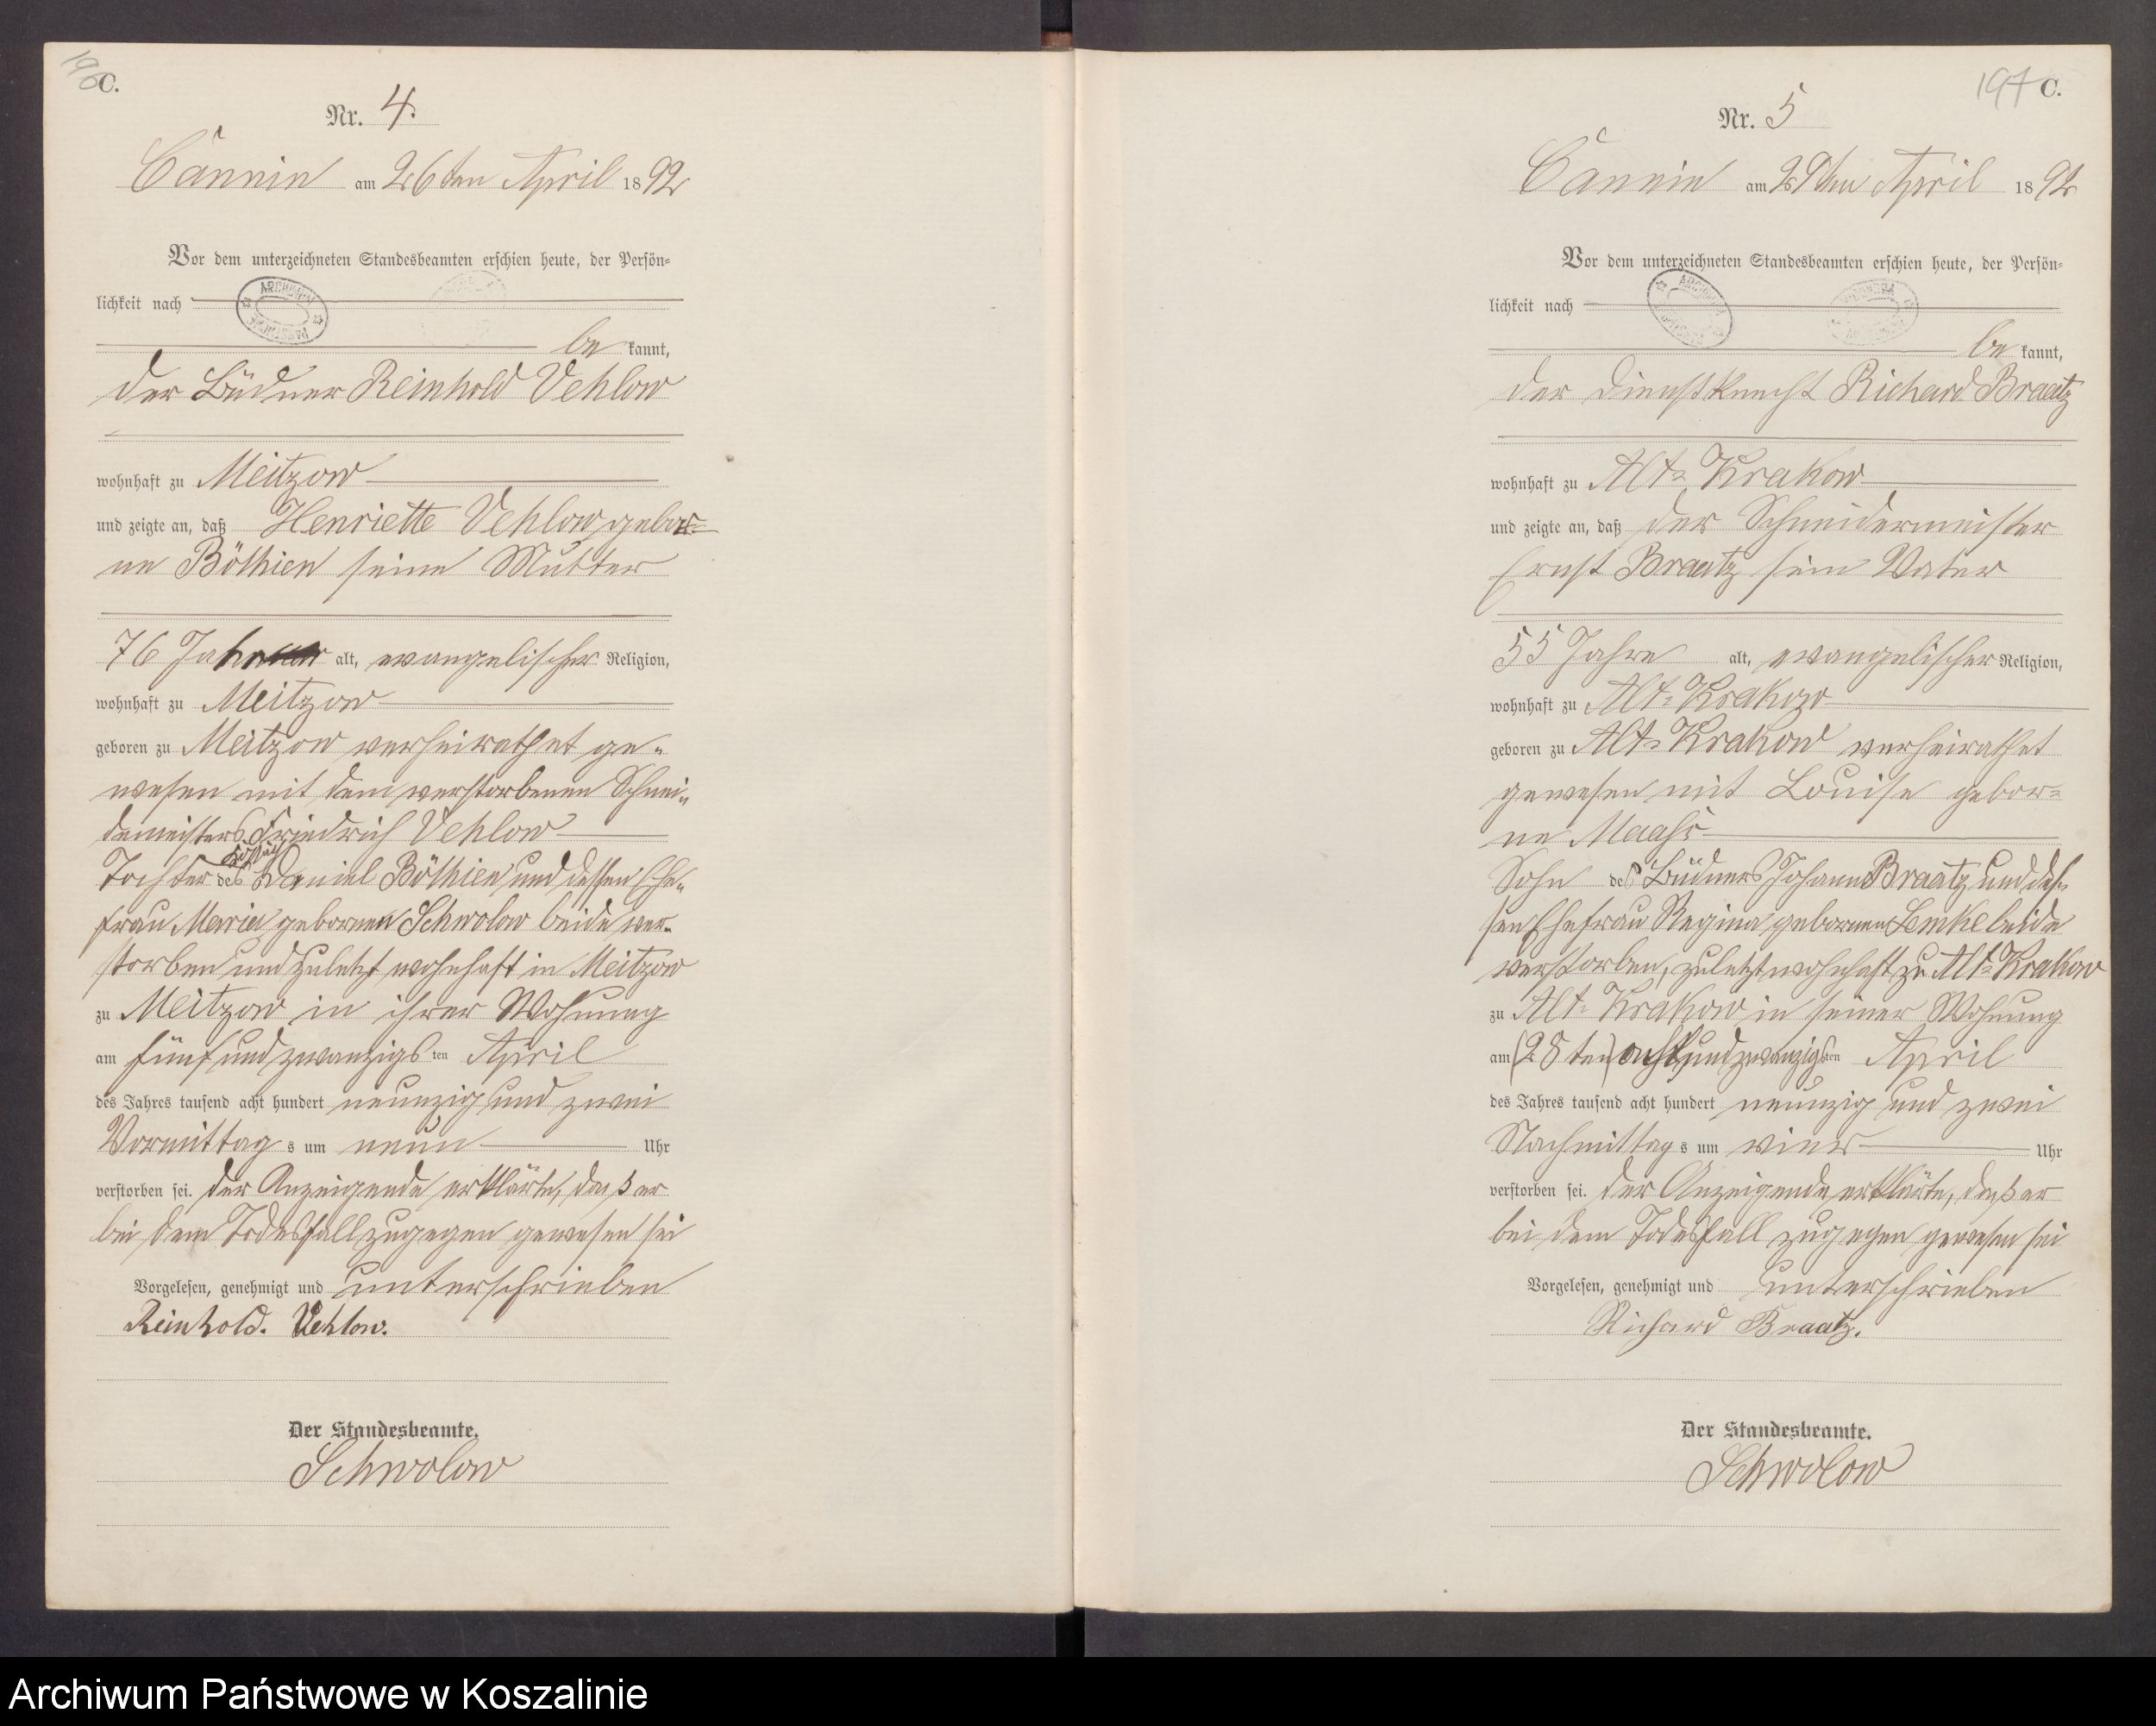 C.
Nr. 4.
Cännin am 26ten April 1892
Vor dem unterzeichneten Standesbeamten erschien heute, der Persön-
lichkeit nach
be kannt,
der Büdner Reinhold Vehlow
wohnhaft zu Meitzow
und zeigte an, daß Henriette Vehlow, gebor-
ne Böthien seine Mutter
76 Jahre alt, evangelischer Religion,
wohnhaft zu Meitzow
geboren zu Meitzow verheirathet ge-
wesen mit dem verstorbenen Schnei-
demeisters Friedrich Vehlow
Tochter des Daniel Böthien und dessen Ehe-
frau Maria gebornen Schwolow beide ver-
storben und zuletzt wohnhaft in Meitzow
zu Meitzow in ihrer Wohnung
am fünf und zwanzigs ten April
des Jahres tausend acht hundert neunzig und zwei
Vormittag s um neun Uhr
verstorben sei. Der Anzeigende erklärte, daß er
bei dem Todesfall zugegen gewesen sei
Vorgelesen, genehmigt und unterschrieben
Reinhold. Vehlow.
Der Standesbeamte.
Schwolow
197 C.
Nr. 5
Cännin am 29ten April 1892
Vor dem unterzeichneten Standesbeamten erschien heute, der Persön-
lichkeit nach
be kannt,
der Dienstknecht Richard Braatz
wohnhaft zu Alt-Krakow
und zeigte an, daß der Schneidermeister
Ernst Braatz sein Vater
55 Jahre alt, evangelischer Religion,
wohnhaft zu Alt-Krakow
geboren zu Alt-Krakow verheirathet
gewesen mit Louise gebor-
ne Maahs
Sohn des Büdners Johann Braatz und des-
sen Ehefrau Regina gebornen Lemke beide
verstorben, zuletzt wohnhaft zu Alt-Krakow
zu Alt-Krakow in seiner Wohnung
am (28ten) acht und zwanzigsten April
des Jahres tausend acht hundert neunzig und zwei
Nachmittag s um vier Uhr
verstorben sei. Der Anzeigende erklärte, daß er
bei dem Todesfall zugegen gewesen sei
Vorgelesen, genehmigt und unterschrieben
Richard Braatz.
Der Standesbeamte.
Schwolow
Archiwum Państwowe w Koszalinie